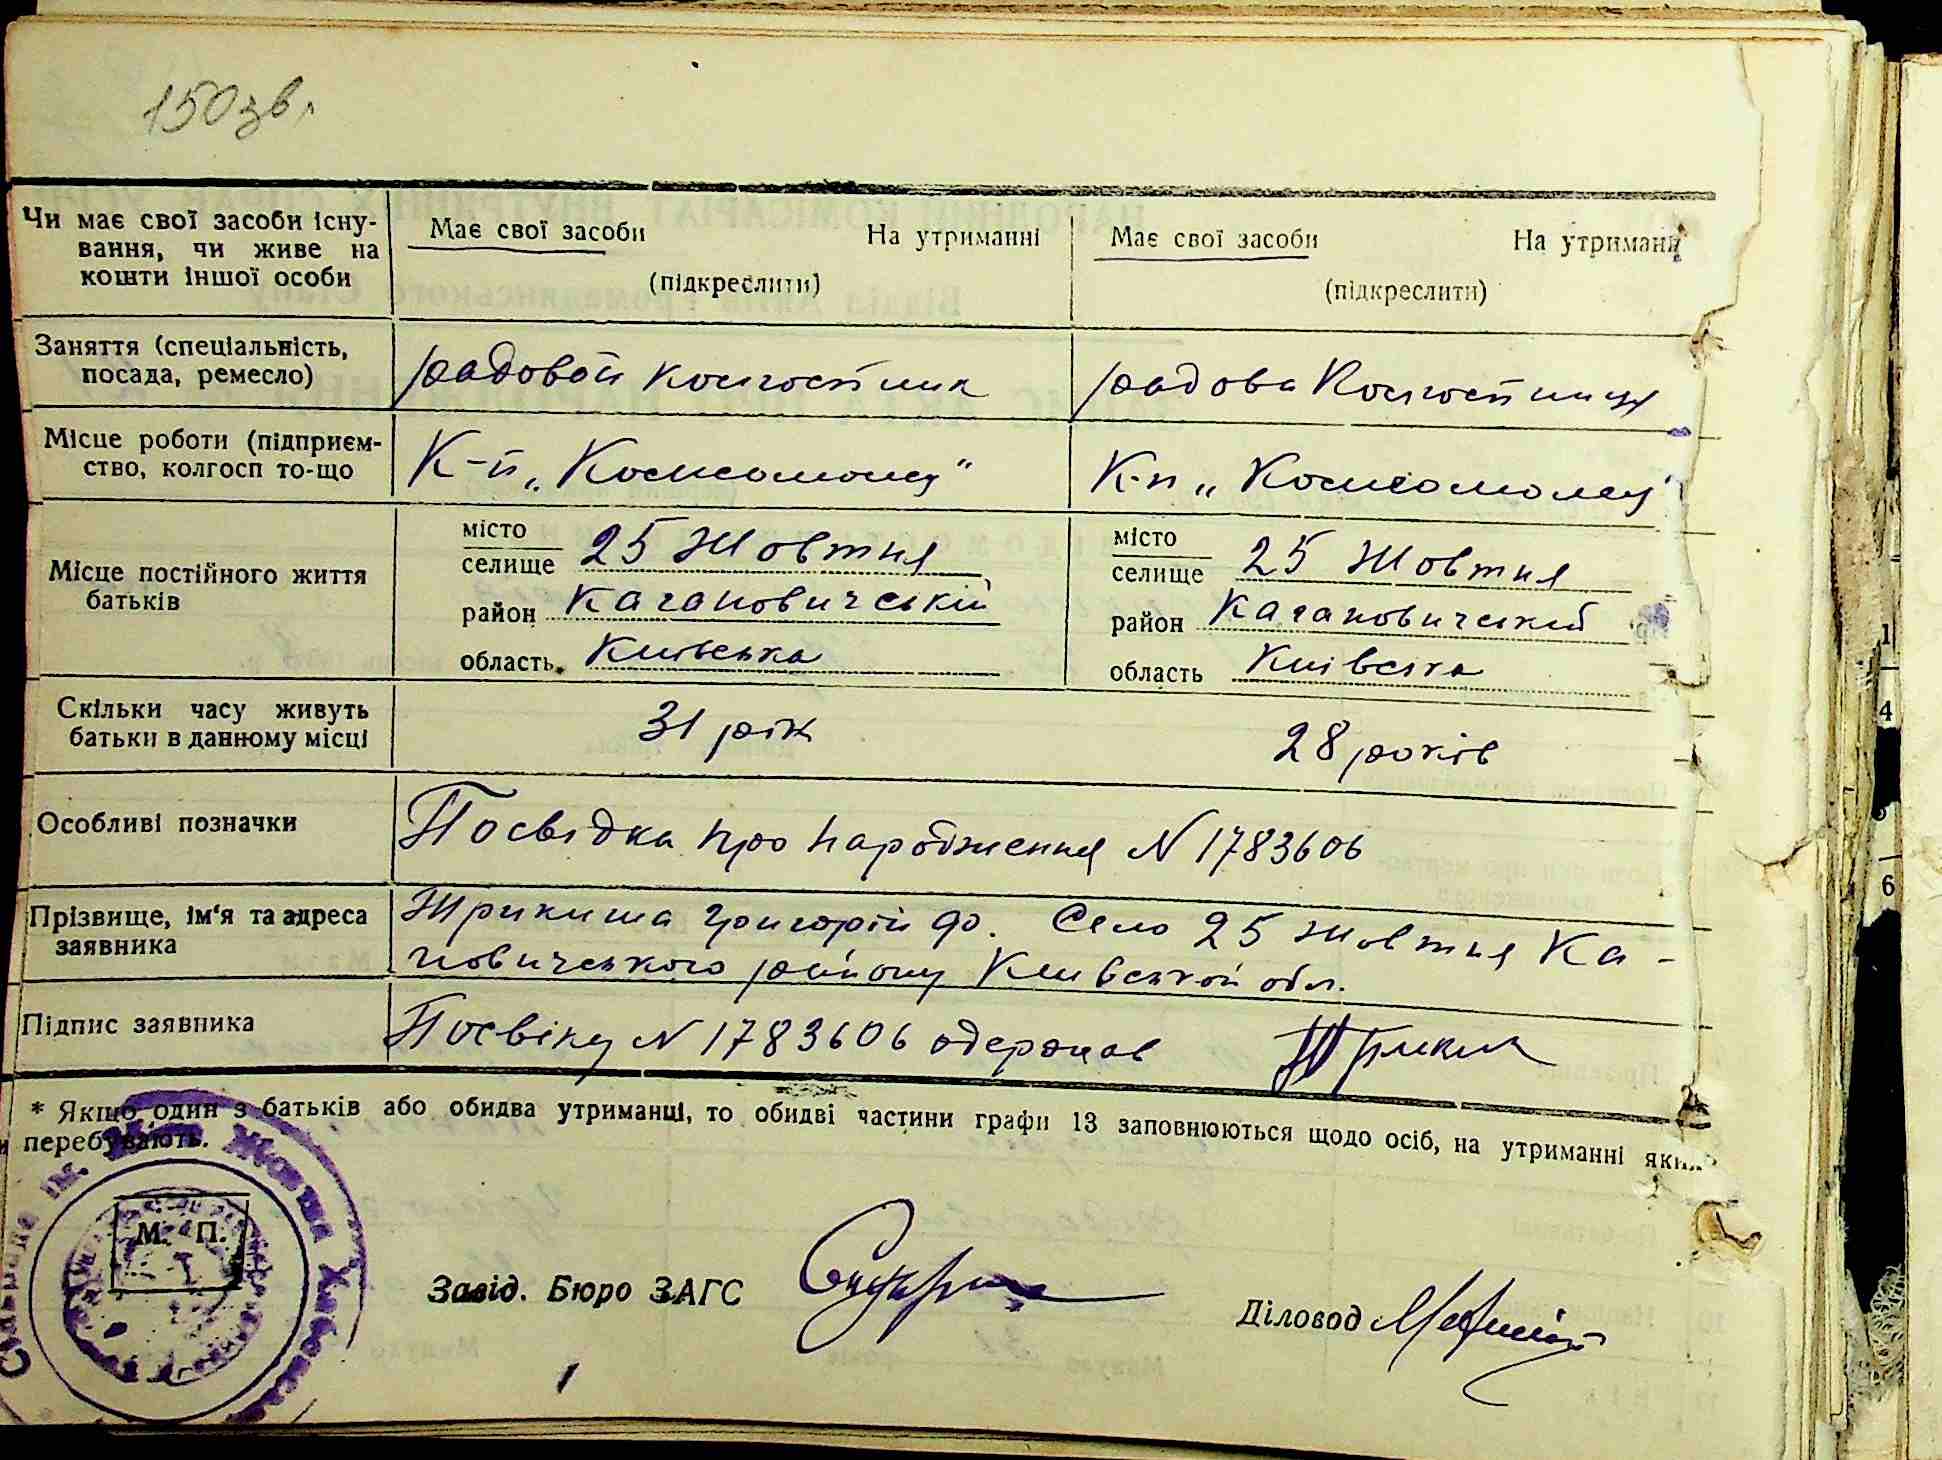 150зв.
Чи має свої засоби існу-
вання, чи живе на
кошти іншої особи
Має свої засоби На утриманні
(підкреслити)
Має свої засоби На утриман
(підкреслити)
Заняття (спеціальність,
посада, ремесло)
радовой колгостник
радова Колгостниця
Місце роботи (підприєм-
ство, колгосп то-що
К-п „Комсомолец"
К-п „Комсомолец"
Місце постійного життя
батьків
місто
селище 25 Жовтня
район Кагановичський
область Київська
місто
селище 25 Жовтня
район Кагановичський
область Київська
Скільки часу живуть
батьки в данному місці
31 рік
28 років
Особливі позначки
Посвідка про народження N 1783606
Прізвище, ім'я та адреса
заявника
Григорій Ф. Село 25 Жовтня Ка-
новичського району Київськой обл.
Підпис заявника
Посвіку N 1783606 одержав
* Якщо один з батьків або обидва утриманці, то обидві частини графи 13 заповнюються щодо осіб, на утриманні яких
перебувають.
М. П.
Завід. Бюро ЗАГС
Діловод
1
4
6